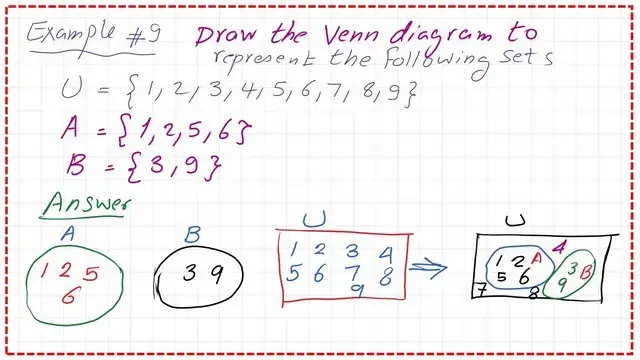 Example #9 Draw the Venn diagram to
represent the following sets
U = {1, 2, 3, 4, 5, 6, 7, 8, 9}
A = {1, 2, 5, 6}
B = {3, 9}
Answer
A
1 2 5
6
B
3 9
U
1 2 3 4
5 6 7 8
9
⇒
U
1 2 A 4
5 6 3 B
9
7 8